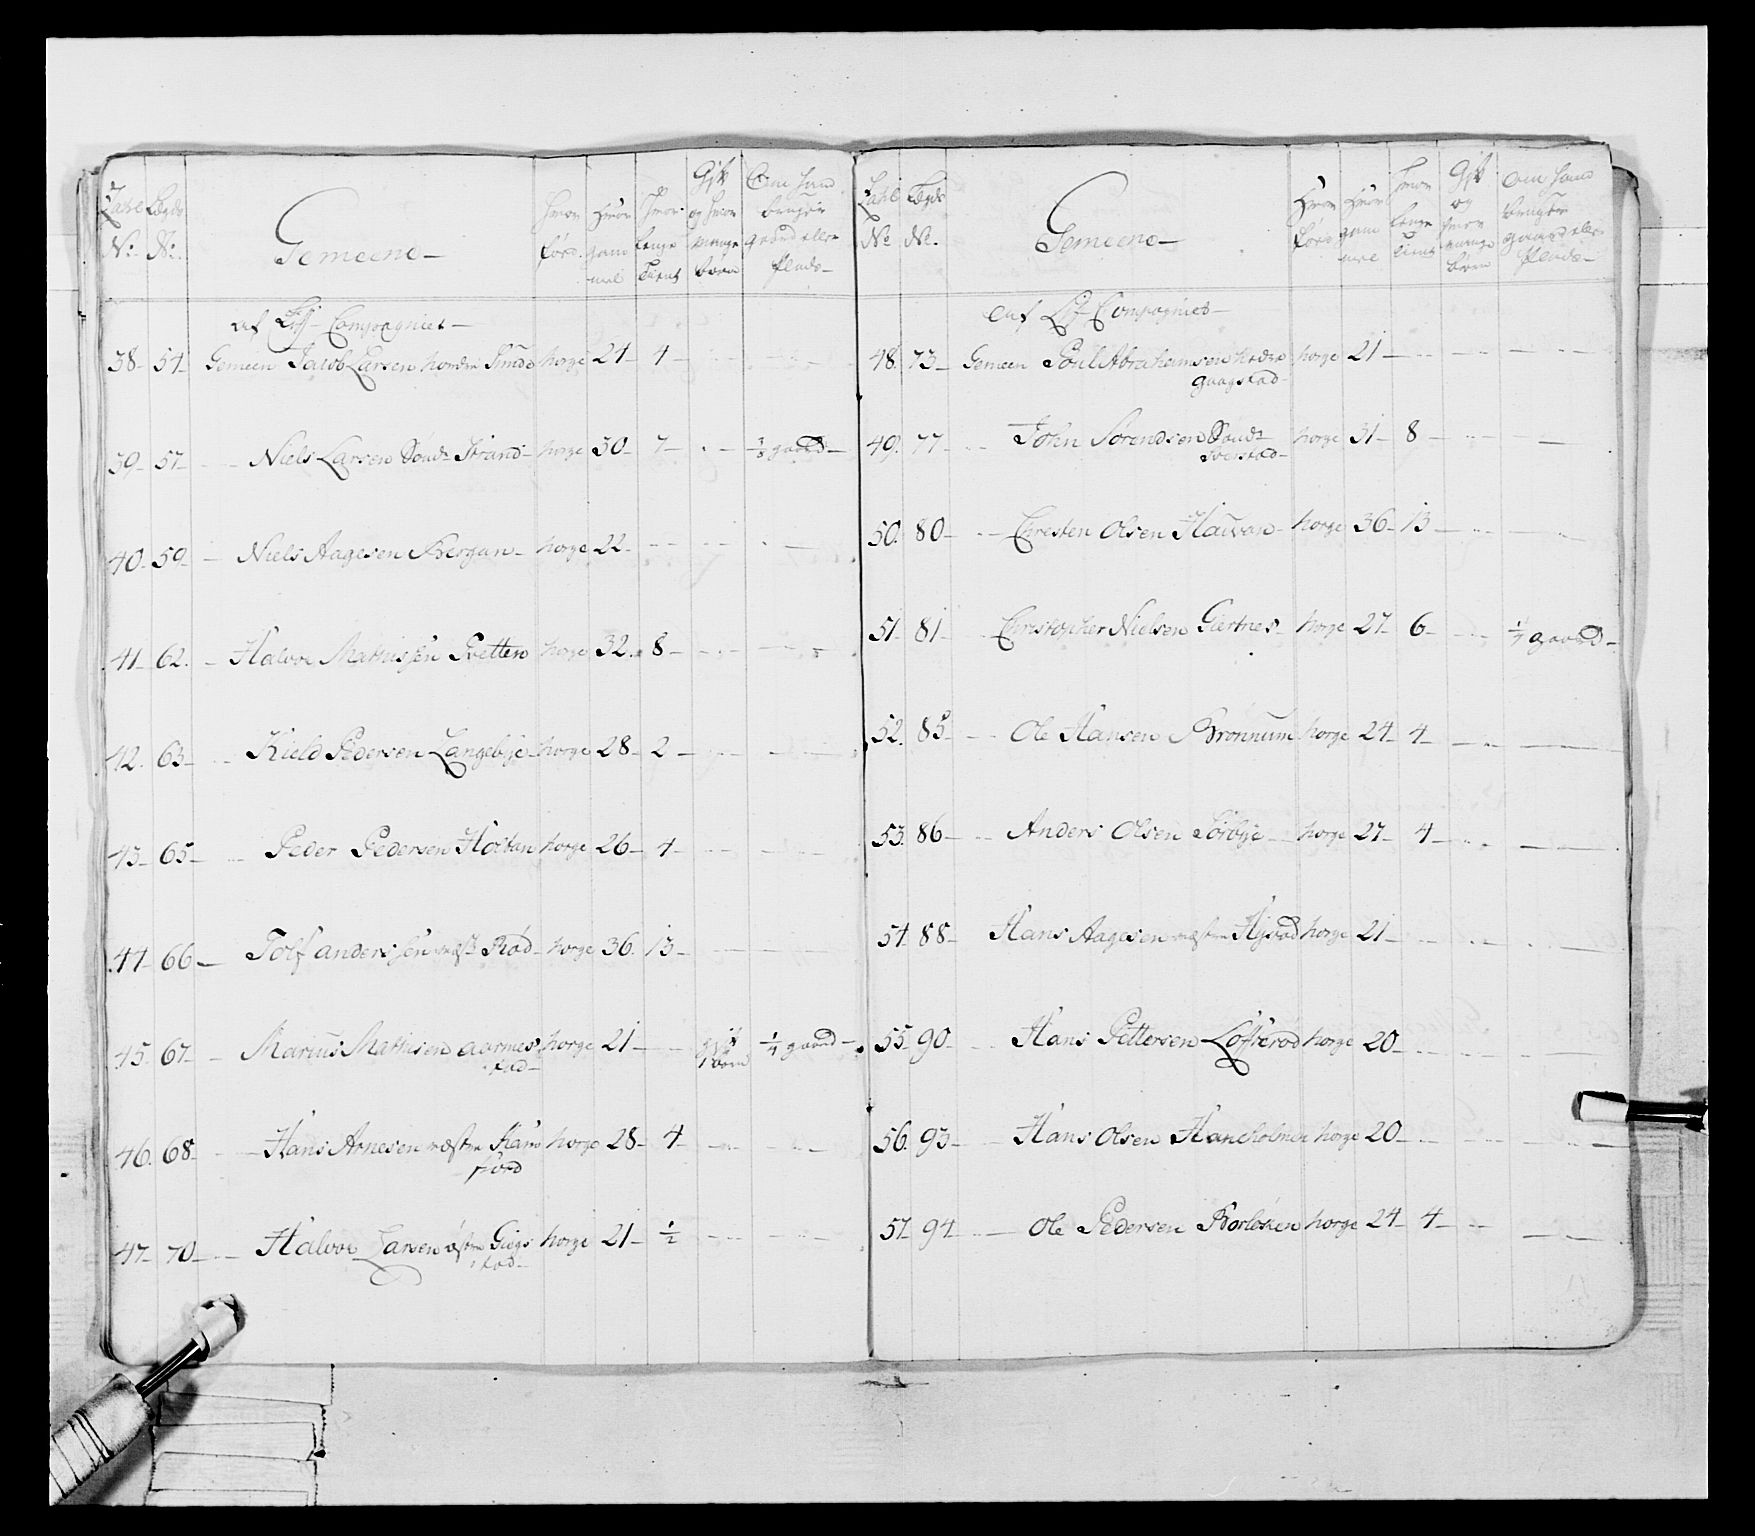 Tahl No: Legds No: Gemeene Hvor född. Hvor gam mel Hvor lenge tient Gift og hvor mange børn Om hand bruger gaard eller Plads
af Lif Compagniet
38 54 Gemeen Jacob Larsen nordre Sunde norge 24 4
39 57 Niels Larsen Sondr Strand norge 30 7 3/8 gaard
40 59 Niels Aagesen Bergan norge 22
41 62 Halvor Mathissen Tvetten norge 32 8
42 63 Kield Pedersen Langebye norge 28 2
43 65 Peder Pedersen Hotvan norge 26 4
44 66 Tolf anderssen Rød norge 36 13
45 67 Marius Mathisen aarnes norge 21 gift 1/4 gaard
stad 1 barn
46 68 Hans Arnesen væstre norge 28 4
47 70 Halvor Larsen østre norge 21 1/2
stad
Tahl No Legds No. Gemeene Hvor född Hvor gam mel Hvor lenge tient Gift og hvor mange børn om hand bruger gaard eller Plads
af Lif Compagniet
48 73 Gemeen Poul Abrahamsen nedre norge 21
gaagstad
49 77 John Sørendsen Sondr norge 31 8
50 80 Christen Olsen norge 36 13
51 81 Christopher Nielsen Giertnes norge 27 6 1/4 gaard
52 85 Ole Hansen Bronnum norge 24 4
53 86 Anders Olsen Sørbye norge 27 4
54 88 Hans Aagesen væstre norge 21
55 90 Hans Pettersen Løfterød norge 20
56 93 Hans Olsen Haneholmen norge 20
57 94 Ole Pedersen norge 24 4